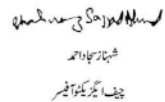 Shahnaz Sajjad Ahmed
شہناز سجاد احمد
چیف ایگزیکٹو آفیسر